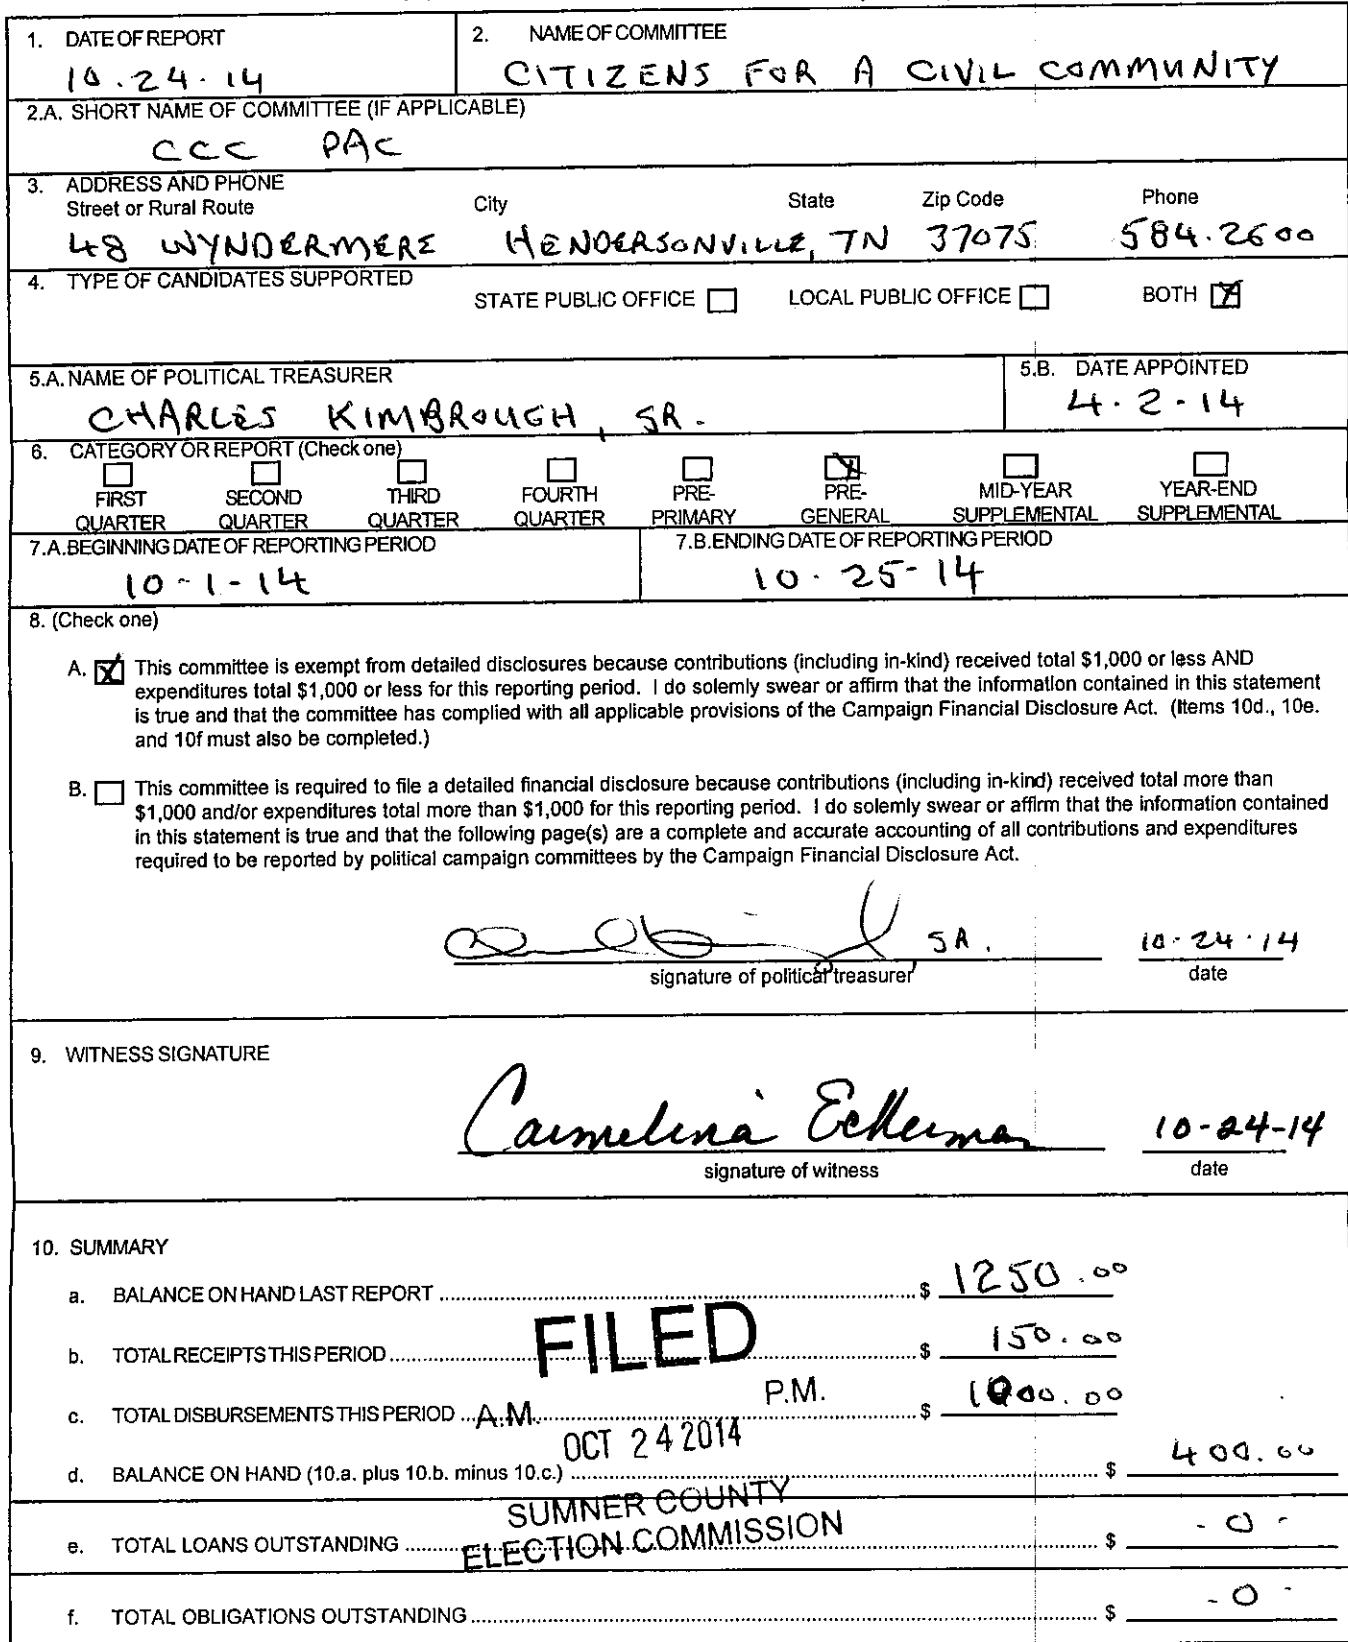 1. DATE OF REPORT
10.24.14
2. NAME OF COMMITTEE
CITIZENS FOR A CIVIL COMMUNITY
2.A. SHORT NAME OF COMMITTEE (IF APPLICABLE)
CCC PAC
3. ADDRESS AND PHONE
Street or Rural Route City State Zip Code Phone
48 WYNDERMERE HENDERSONVILLE, TN 37075 584.2600
4. TYPE OF CANDIDATES SUPPORTED
STATE PUBLIC OFFICE LOCAL PUBLIC OFFICE BOTH X
5.A. NAME OF POLITICAL TREASURER
CHARLES KIMBROUGH, SR.
5.B. DATE APPOINTED
4.2-14
6. CATEGORY OR REPORT (Check one)
FIRST QUARTER
SECOND QUARTER
THIRD QUARTER
FOURTH QUARTER
PRE-PRIMARY
X PRE-GENERAL
MID-YEAR SUPPLEMENTAL
YEAR-END SUPPLEMENTAL
7.A. BEGINNING DATE OF REPORTING PERIOD
10-1-14
7.B. ENDING DATE OF REPORTING PERIOD
10.25-14
8. (Check one)
A. X This committee is exempt from detailed disclosures because contributions (including in-kind) received total $1,000 or less AND
expenditures total $1,000 or less for this reporting period. I do solemly swear or affirm that the information contained in this statement
is true and that the committee has complied with all applicable provisions of the Campaign Financial Disclosure Act. (Items 10d., 10e.
and 10f must also be completed.)
B. This committee is required to file a detailed financial disclosure because contributions (including in-kind) received total more than
$1,000 and/or expenditures total more than $1,000 for this reporting period. I do solemly swear or affirm that the information contained
in this statement is true and that the following page(s) are a complete and accurate accounting of all contributions and expenditures
required to be reported by political campaign committees by the Campaign Financial Disclosure Act.
SR. 10.24.14
signature of political treasurer date
9. WITNESS SIGNATURE
Carmelina Eckerman 10-24-14
signature of witness date
10. SUMMARY
a. BALANCE ON HAND LAST REPORT $ 1250.00
b. TOTAL RECEIPTS THIS PERIOD $ 150.00
c. TOTAL DISBURSEMENTS THIS PERIOD $ 1000.00
d. BALANCE ON HAND (10.a. plus 10.b. minus 10.c.) $ 400.00
e. TOTAL LOANS OUTSTANDING $ -0-
f. TOTAL OBLIGATIONS OUTSTANDING $ -0-
FILED
A.M. P.M.
OCT 24 2014
SUMNER COUNTY
ELECTION COMMISSION